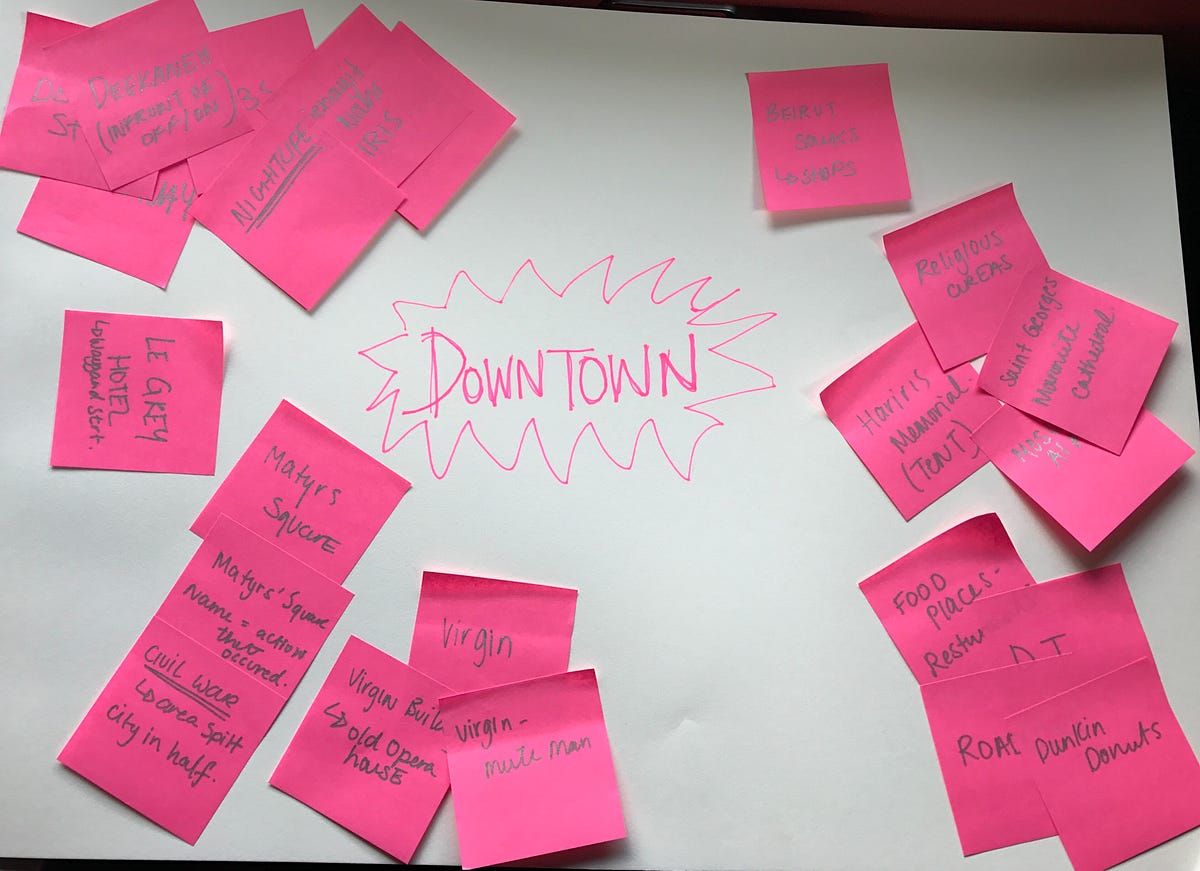 De
St
DEEKANEH
(INFRONT OF
OFF/ON)
NIGHTLIFE
IRIS.
BEIRUT
SOUKS
↳SHOPS
Religious
AREAS
Saint Georges
Maronite
Cathedral.
Hariris
Memorial
(TENT)
LE GREY
HOTEL
↳Waygand Strt.
DOWNTOWN
Matyrs
SQUARE
Matyrs' Square
Name = action
that
occured.
CIVIL WAR
↳area Split
City in half.
Virgin
Virgin Buil
↳Old Opera
house
Virgin-
Mute Man
FOOD
Places-
Rest
ROAD
Dunkin
Donuts